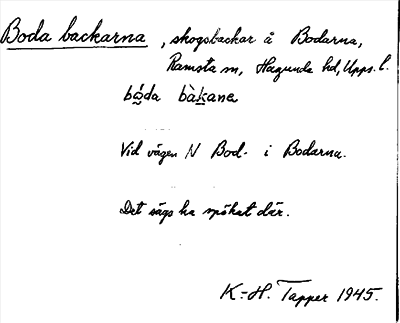 Boda backarna, skogsbackar å Bodarna,
Ramsta sn, Hagunda hd, Upps. l.
bóda bàkane
Vid vägen N Bod- i Bodarna.
Det sägs ha spökat där.
K.-H. Tapper 1945.